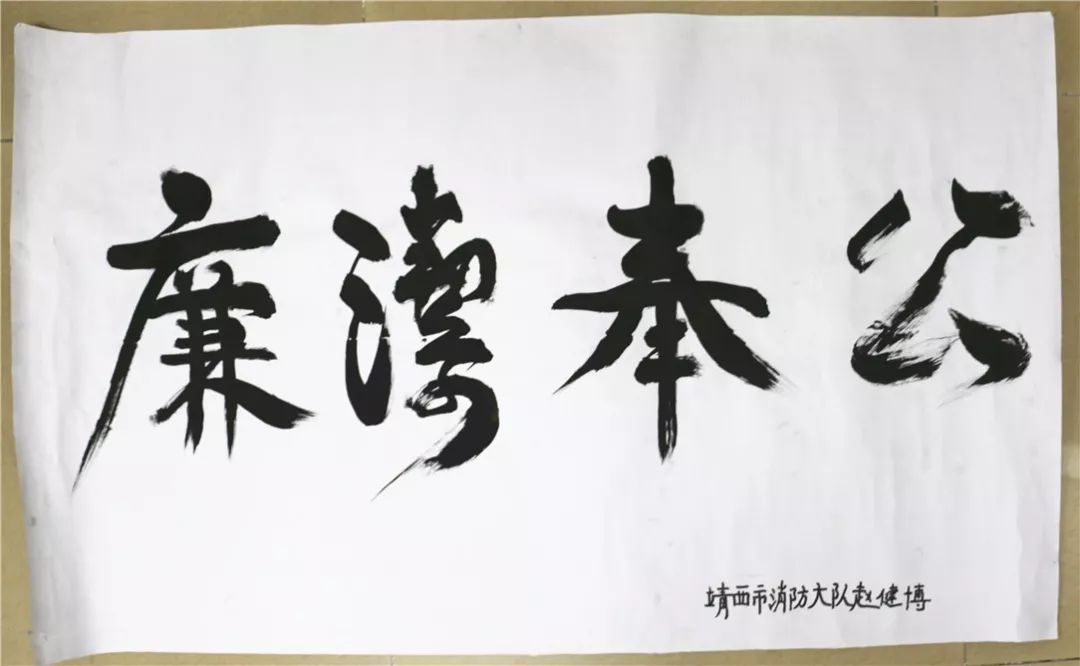 廉潔奉公
靖西市消防大队赵健博